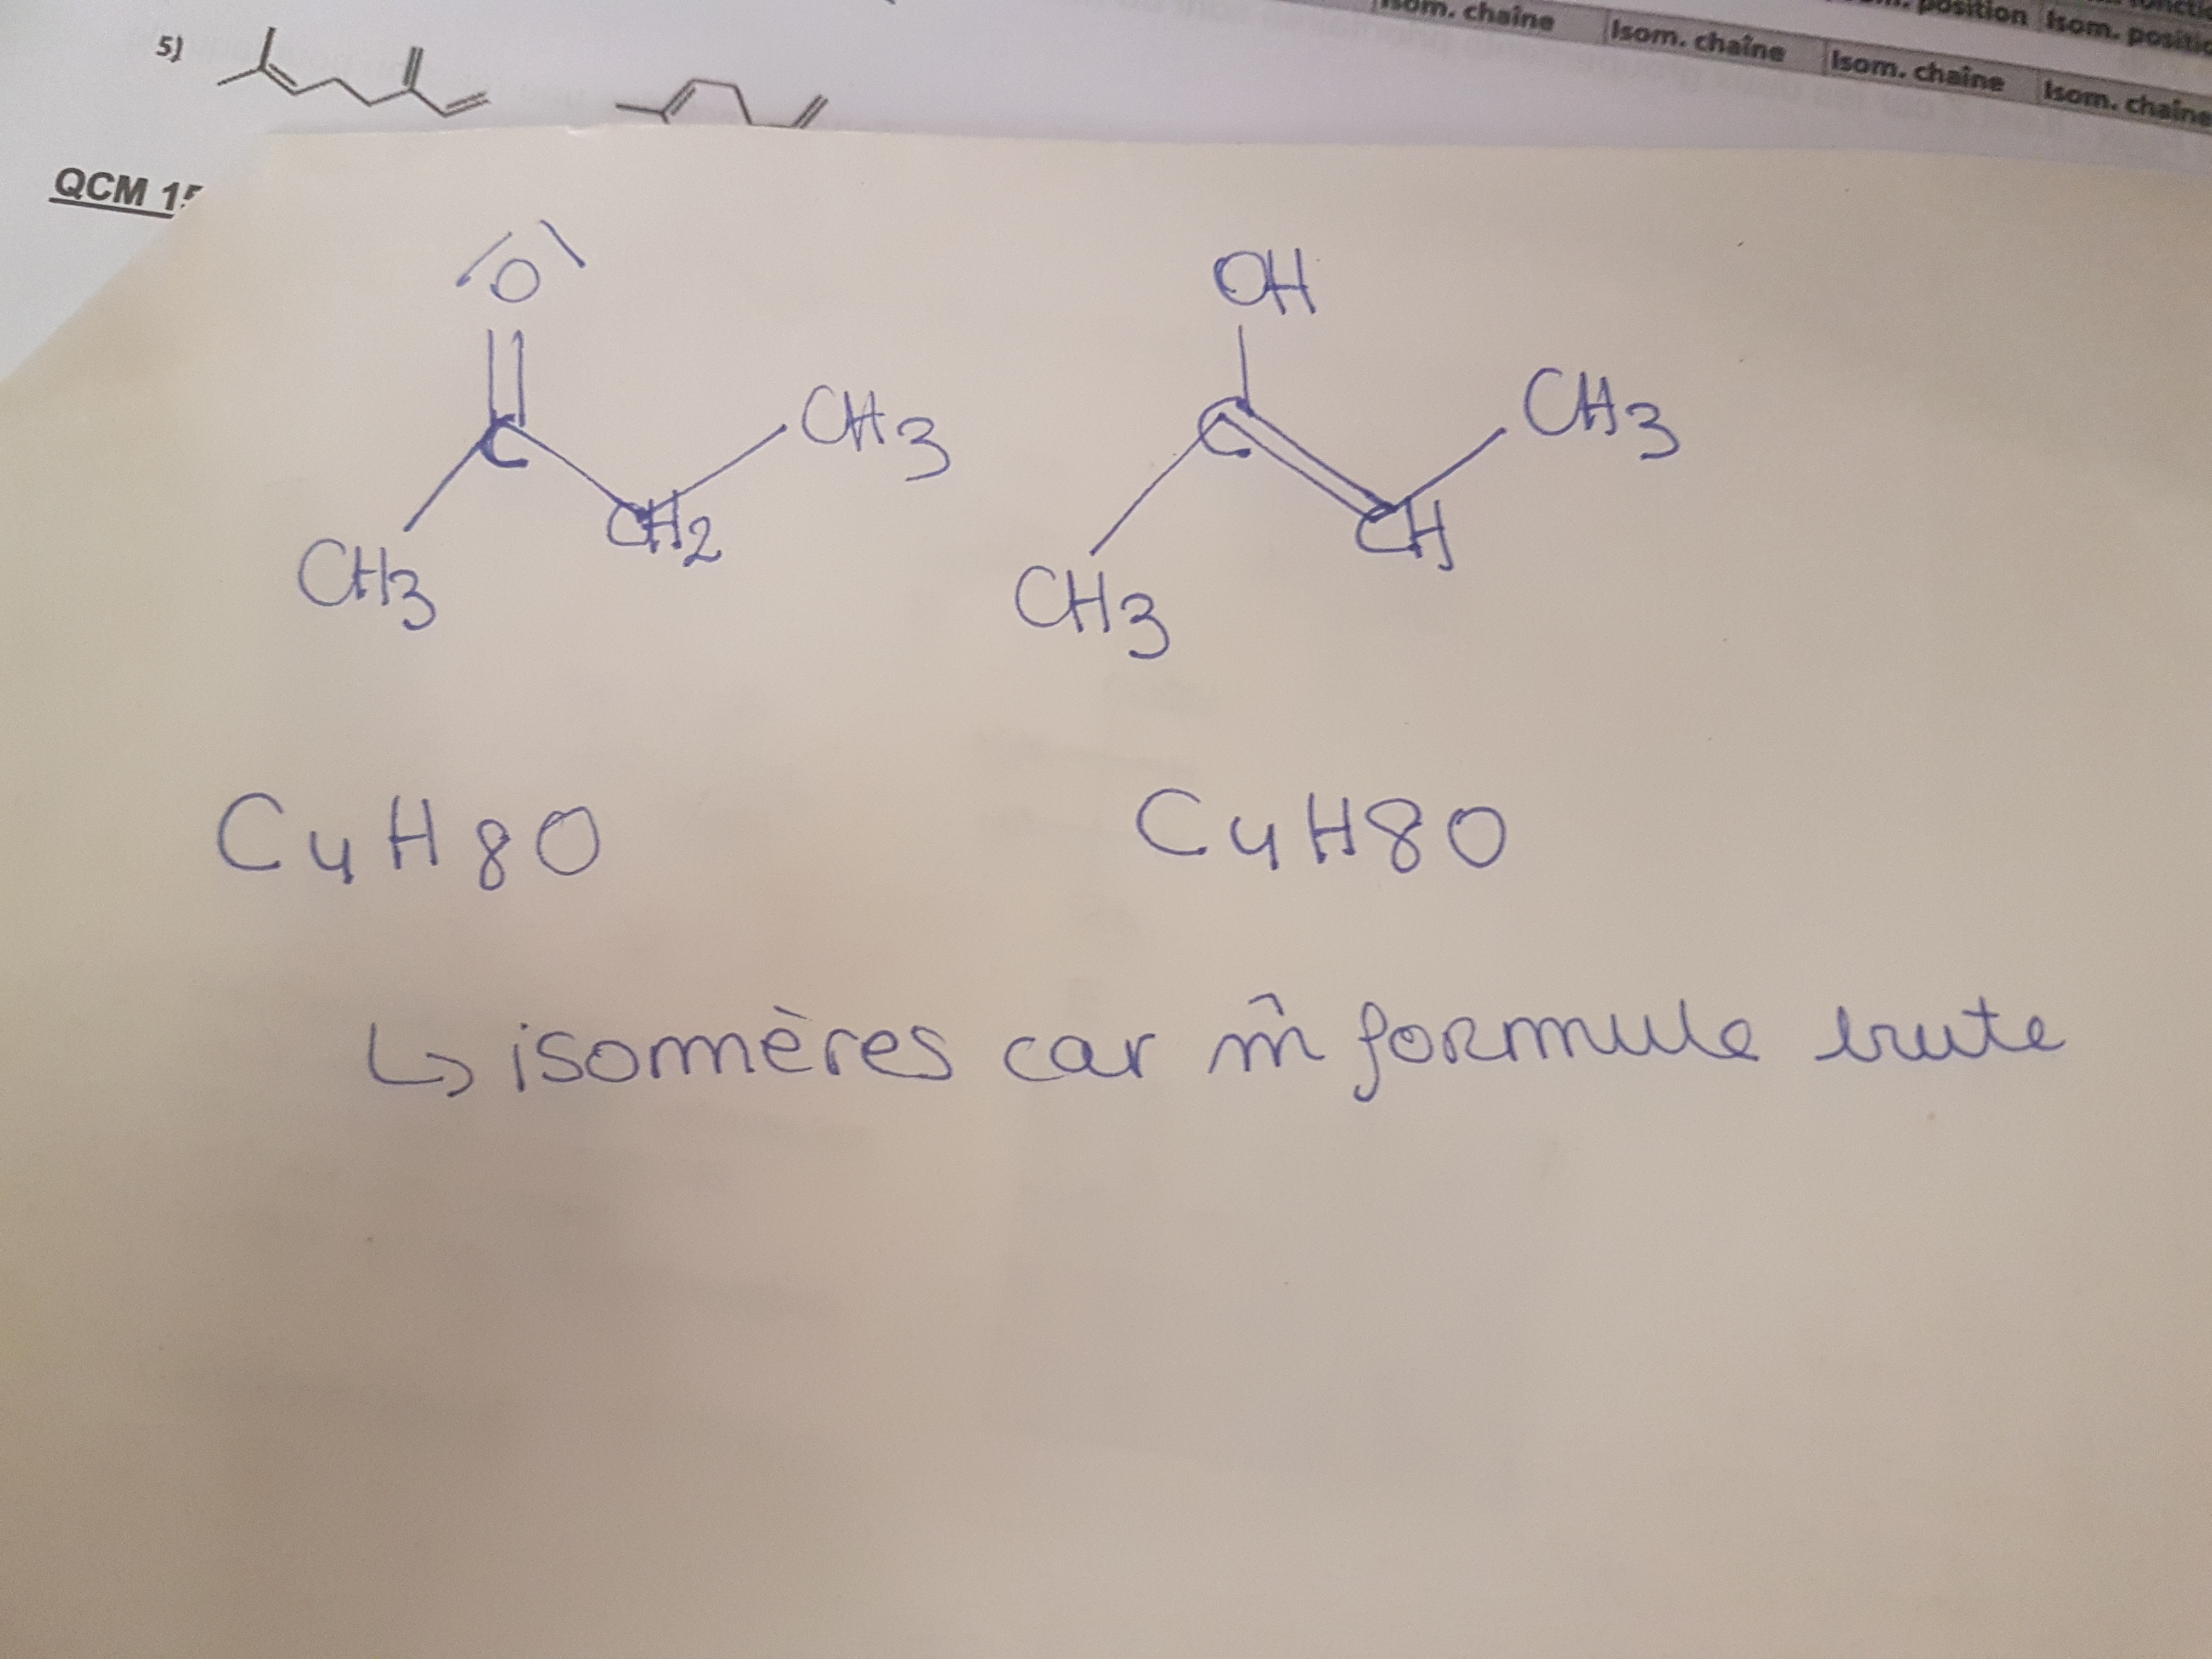 Isom. chaîne Isom. chaîne Isom. chaîne Isom. chaîne
position Isom.
5)
QCM 15
O
OH
C CH3
C CH3
CH3 CH2
CH3 CH
C4H8O C4H8O
↳ isomères car m̂ formule brute